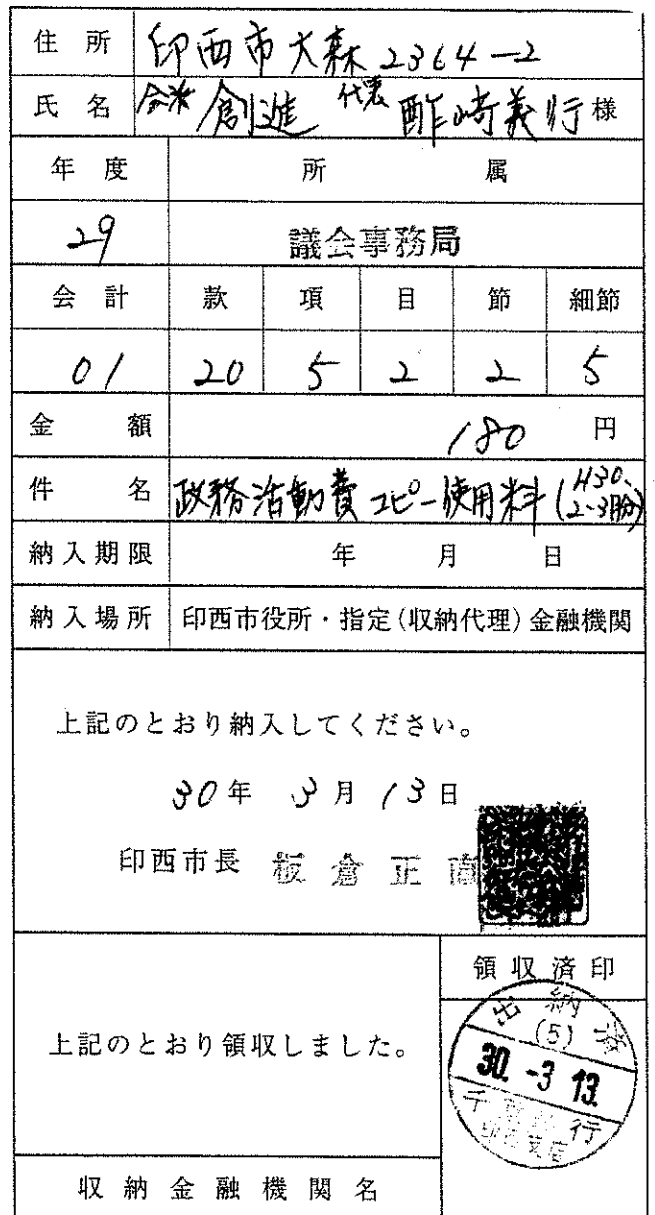 住所 印西市大森2364-2
氏名 会派 創進 代表 酢崎義行様
年度 所属
29 議会事務局
会計 款 項 目 節 細節
01 20 5 2 2 5
金額 180円
件名 政務活動費コピー使用料(H30. 2-3月分)
納入期限 年 月 日
納入場所 印西市役所・指定(収納代理)金融機関
上記のとおり納入してください。
30年 3月 13日
印西市長 板倉正直
領収済印
上記のとおり領収しました。
出納済
(5)
30. -3 13.
千葉銀行
印西支店
収納金融機関名